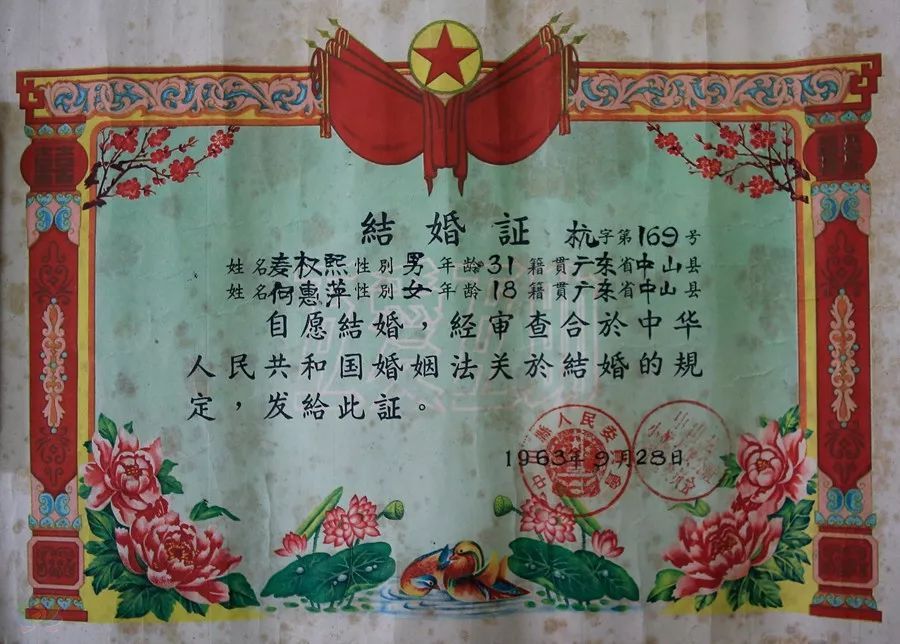 結婚証 杭字第169号
姓名麦权熙性別男年龄31籍貫广东省中山县
姓名何惠萍性別女年龄18籍貫广东省中山县
自愿結婚，経审查合於中华
人民共和国婚姻法关於結婚的規
定，发給此証。
1963年9月28日